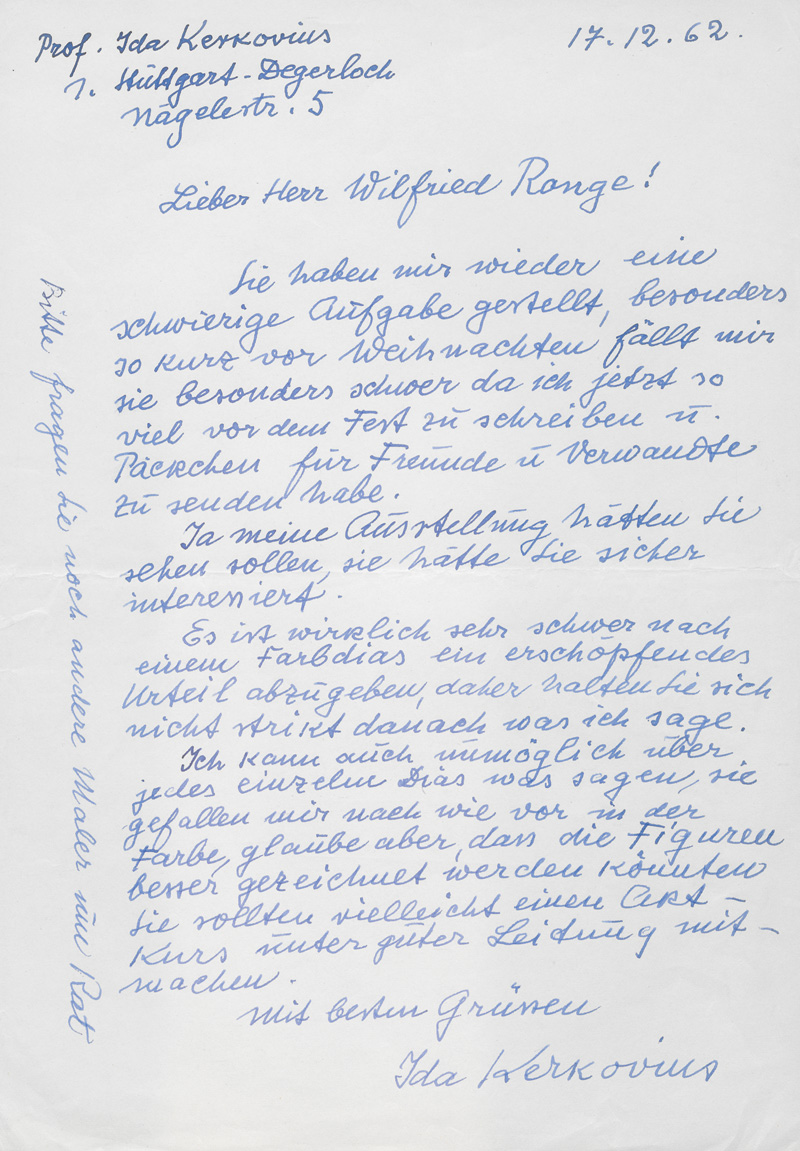 Prof. Ida Kerkovius
17.12.62.
1. Stuttgart-Degerloch
Nägelestr. 5
Lieber Herr Wilfried Ronge!
Sie haben mir wieder eine
schwierige Aufgabe gestellt, besonders
so kurz vor Weihnachten fällt mir
sie besonders schwer da ich jetzt so
viel vor dem Fest zu schreiben u.
Päckchen für Freunde u Verwandte
zu senden habe.
Ja meine Ausstellung hätten Sie
sehen sollen, sie hätte Sie sicher
interessiert.
Es ist wirklich sehr schwer nach
einem Farbdias ein erschöpfendes
Urteil abzugeben, daher halten Sie sich
nicht strikt danach was ich sage.
Ich kann auch unmöglich über
jedes einzelne Dias was sagen, sie
gefallen mir nach wie vor in der
Farbe, glaube aber, dass die Figuren
besser gezeichnet werden könnten
Sie sollten vielleicht einen Akt-
Kurs unter guter Leitung mit-
machen.
mit besten Grüssen
Ida Kerkovius
Bitte fragen Sie noch andere Maler um Rat